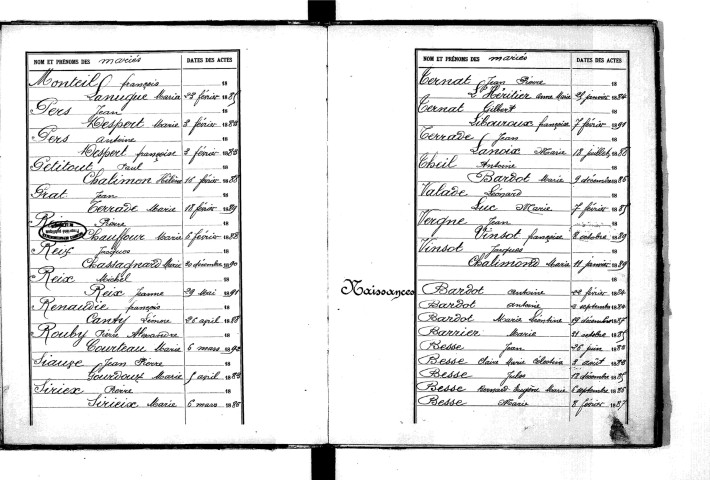 NOM ET PRÉNOMS DES mariés DATES DES ACTES
Monteil françois 18
Lanuque Marie 23 février 1885
Pers Jean 18
Mespert Marie 3 février 1883
Pers Antoine 18
Mespert françoise 3 février 1883
Petitout Paul 18
Chatimon Hélène 15 février 1885
Prat Jean 18
Terrade Marie 18 février 1889
Pierre 18
Chauffour Marie 6 février 1888
Reix Jacques 18
Chassagnard Marie 20 décembre 1890
Reix Michel 18
Reix Jeanne 29 Mai 1891
Renaudie françois 18
Canty Léonore 26 avril 1888
Rouby Pierre Alexandre 18
Courteau Marie 6 mars 1892
Siauze Jean Pierre 18
Gourdoux Marie 5 avril 1883
Siriex Pierre 18
Sirieix Marie 6 mars 1886
NOM ET PRÉNOMS DES mariés DATES DES ACTES
Ternat Jean Pierre 18
L'Héritier Anne Marie 25 janvier 1884
Ternat Gilbert 18
Libouroux françoise 7 février 1891
Terrade Jean 18
Lanoix Marie 18 juillet 1886
Theil Antoine 18
Bardot Marie 9 décembre 1886
Valade Léonard 18
Luc Marie 7 février 1885
Vergne Jean 18
Vinsot françoise 8 octobre 1889
Vinsot Jacques 18
Chatimond Marie 11 janvier 1889
Naissances
Bardot Antoine 22 février 1884
Bardot Antoine 2 septembre 1884
Bardot Marie Léontine 19 décembre 1887
Barrier Marie 21 octobre 1885
Besse Jean 26 juin 1883
Besse Claire Marie Célestine 8 août 1883
Besse Jules 12 décembre 1885
Besse Bernard Eugène Marie 6 septembre 1886
Besse Marie 8 février 1887